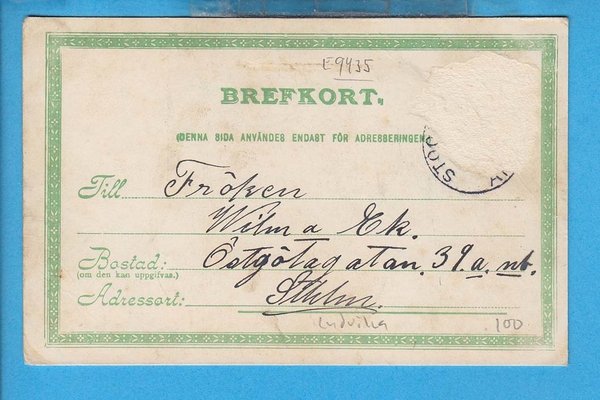 E9435
BREFKORT.
(DENNA SIDA ANVÄNDES ENDAST FÖR ADRESSERINGEN
STOC
Till Fröken
Wilma Ek.
Bostad: Östgötagatan. 39. a. nb.
(om den kan uppgifvas.)
Adressort: Sthlm.
Ludvika 100